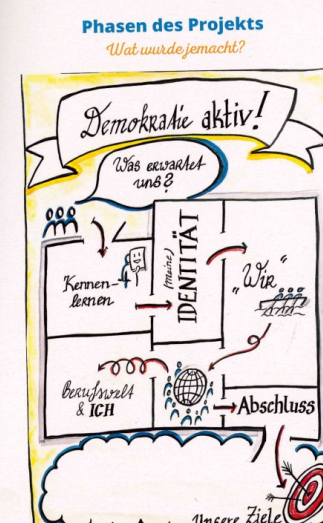 Phasen des Projekts
Wat wurde jemacht?
Demokratie aktiv!
Was erwartet
uns?
Kennen-
lernen
(meine)
IDENTITÄT
"Wir"
Berufswelt
& ICH
Abschluss
Unsere Ziele